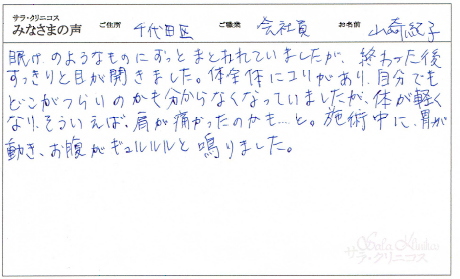 サラ・クリニコス
みなさまの声 ご住所 千代田区 ご職業 会社員 お名前 山崎紀子
眠け のようなものにずっとまとわれていましたが、終わった後
すっきりと目が開きました。体全体にコリがあり、自分でも
どこがつらいのかも分からなくなっていましたが、体が軽く
なり、そういえば、肩が痛かったのかも…と。施術中に、胃が
動き、お腹がギュルルルと鳴りました。
Sala Kliniko
サラ・クリニコス